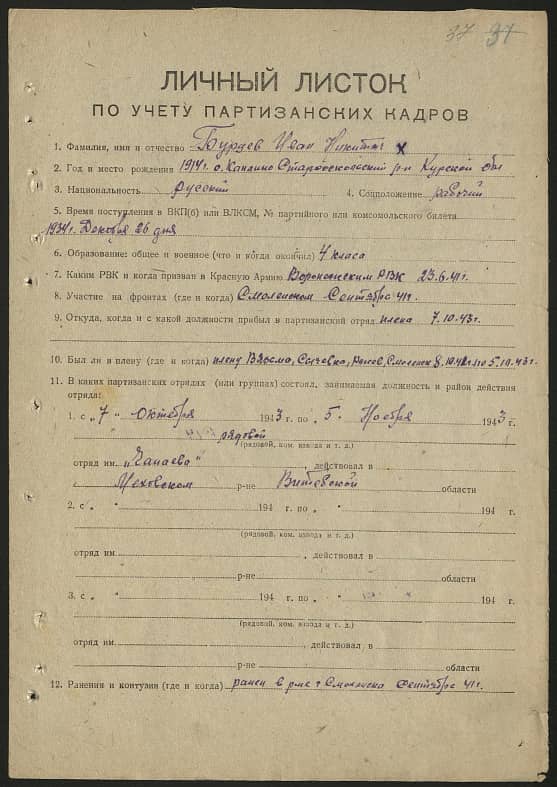 37 37
ЛИЧНЫЙ ЛИСТОК
ПО УЧЕТУ ПАРТИЗАНСКИХ КАДРОВ
1. Фамилия, имя и отчество Бурдев Иван Никитич х
2. Год и место рождения 1914 г. Старооскольский р-н Курской обл
3. Национальность русский 4. Соцположение рабочий
5. Время поступления в ВКП(б) или ВЛКСМ, № партийного или комсомольского билета
1934 г. Декабря 26 дня
6. Образование: общее и военное (что и когда окончил) 4 класса
7. Каким РВК и когда призван в Красную Армию Воронежским РВК 23.6.41 г.
8. Участие на фронтах (где и когда) Смоленском Сентябрь 41 г.
9. Откуда, когда и с какой должности прибыл в партизанский отряд плена 7.10.43 г.
10. Был ли в плену (где и когда) плену Вязьма, Сычевка, Ржев, Смоленск 8.10.41 г. по 5.10.43 г.
11. В каких партизанских отрядах (или группах) состоял, занимаемая должность и район действия
отряда:
1. с „ 7 " Октября 1943 г. по „ 5. Ноября 1943 г.
рядовой
(рядовой, ком. взвода и т. д.)
отряд им. „Чапаева" , действовал в
Меховском р-не Витебской области
2. с „ " 194 г. по „ " 194 г.
(рядовой, ком. взвода и т. д.)
отряд им. , действовал в
р-не области
3. с „ " 194 г. по „ " 194 г.
(рядовой, ком. взвода и т. д.)
отряд им. , действовал в
р-не области
12. Ранения и контузии (где и когда) ранен в Смоленска Сентябре 41 г.